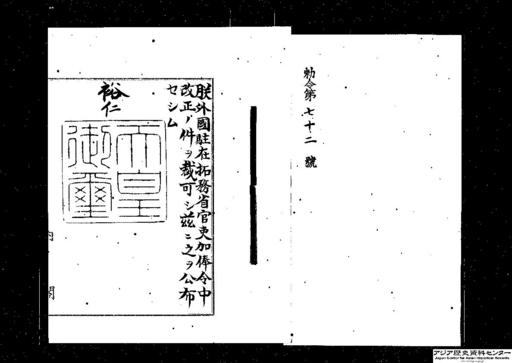 勅令第七十二號
朕外國駐在拓務省官吏加俸令中
改正ノ件ヲ裁可シ茲ニ之ヲ公布
セシム
裕仁
天皇
御璽
内閣
アジア歴史資料センター
Japan Center for Asian Historical Records